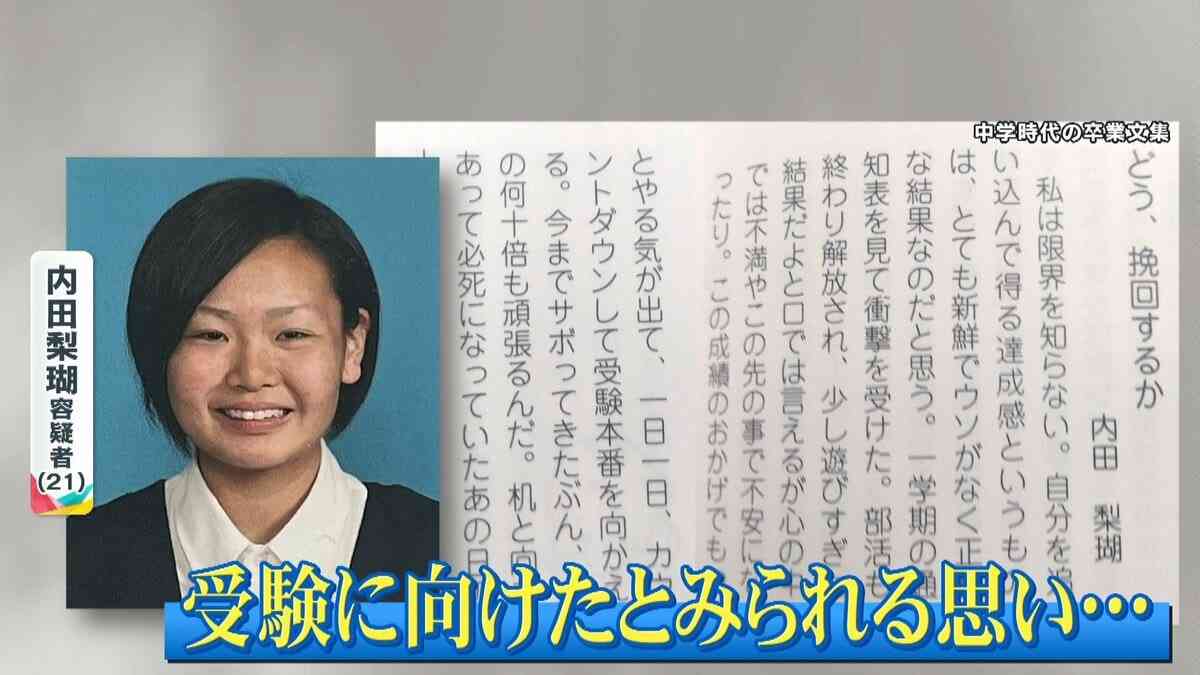 中学時代の卒業文集
どう、挽回するか
内田 梨瑚
私は限界を知らない。自分を追
い込んで得る達成感というも
は、とても新鮮でウソがなく正
な結果なのだと思う。一学期の通
知表を見て衝撃を受けた。部活も
終わり解放され、少し遊びすぎ
結果だよと口では言えるが心の中
では不満やこの先の事で不安にな
ったり。この成績のおかげでも
とやる気が出て、一日一日、カウ
ントダウンして受験本番を向かえ
る。今までサボってきたぶん、
の何十倍も頑張るんだ。机と向
あって必死になっていたあの日
内田梨瑚容疑者
(21)
受験に向けたとみられる思い…